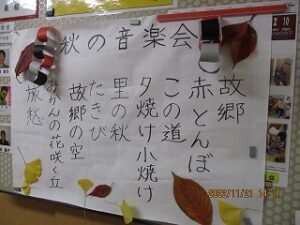 秋の音楽会
故郷
赤とんぼ
この道
夕焼け小焼け
里の秋
たきび
故郷の空
みかんの花咲く丘
旅愁